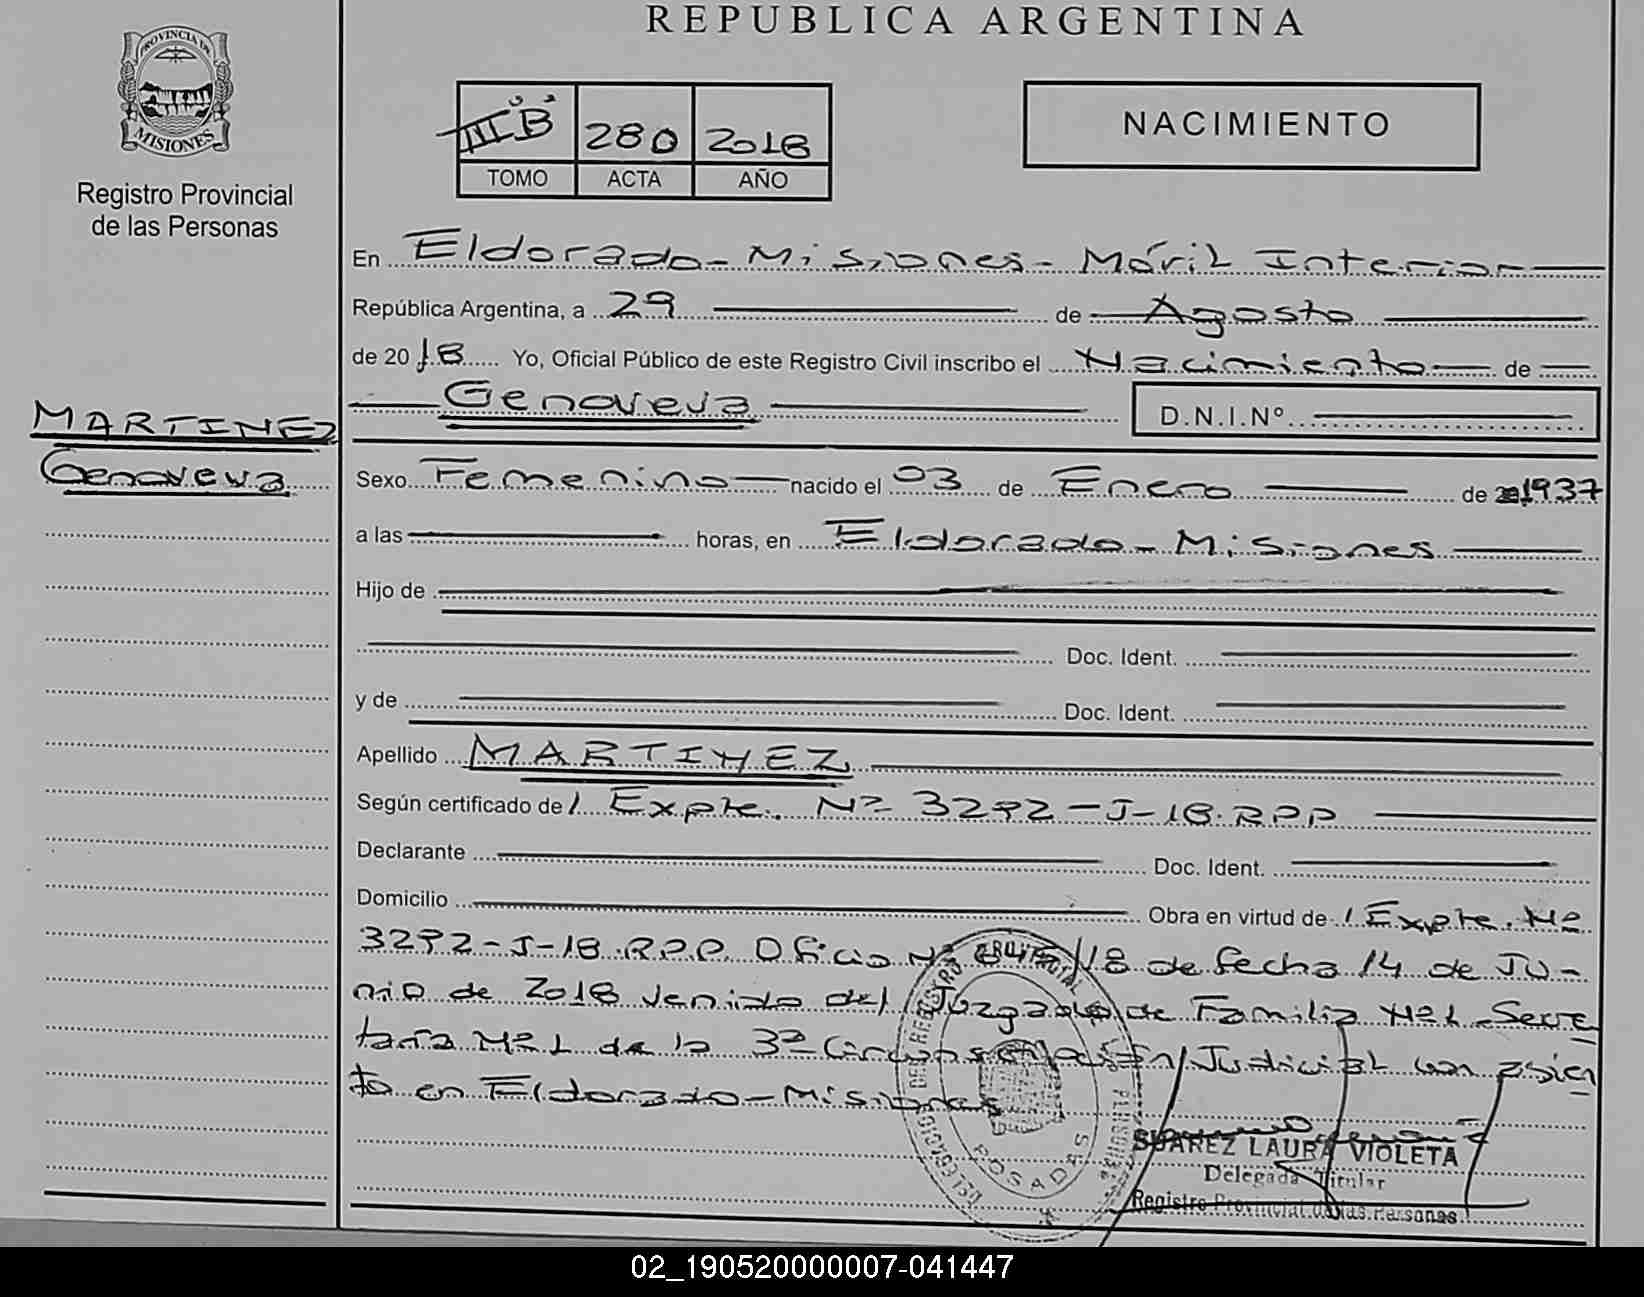 REPUBLICA ARGENTINA
PROVINCIA DE
MISIONES
Registro Provincial
de las Personas
III B 280 2018
TOMO ACTA AÑO
NACIMIENTO
En Eldorado - Misiones - Móvil Interior
República Argentina, a 29 de Agosto
de 2018 Yo, Oficial Público de este Registro Civil inscribo el Nacimiento de
Genoveva D.N.I.Nº
MARTINEZ
Genoveva
Sexo Femenino nacido el 03 de Enero de 1937
a las horas, en Eldorado - Misiones
Hijo de
Doc. Ident.
y de Doc. Ident.
Apellido MARTINEZ
Según certificado de / Expte. Nº 3292-J-18.RPP
Declarante Doc. Ident.
Domicilio Obra en virtud de / Expte. Nº
3292-J-18.R.P.P. Oficio Nº /18 de fecha 14 de Ju-
nio de 2018 venido del Juzgado de Familia Nº1 - Secre
taría Nº1 de la 3ª Circunscripción Judicial con asien
to en Eldorado - Misiones
POSADAS
SUAREZ LAURA VIOLETA
Delegada Titular
Registro Provincial de las Personas
02_190520000007-041447